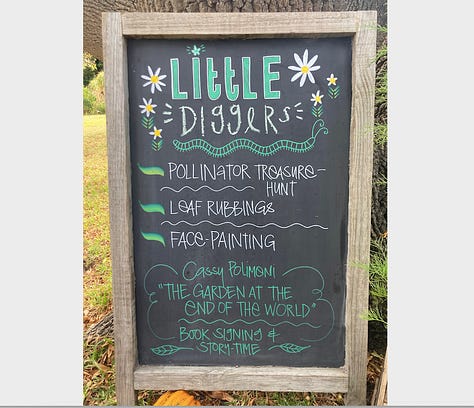 LittLE
DIGGERS
POLLINATOR TREASURE-
HUNT
LEAF RUBBINGS
FACE-PAINTING
Cassy Polimeni
"THE GARDEN AT THE
END OF THE WORLD"
BOOK SIGNING &
STORY-TIME